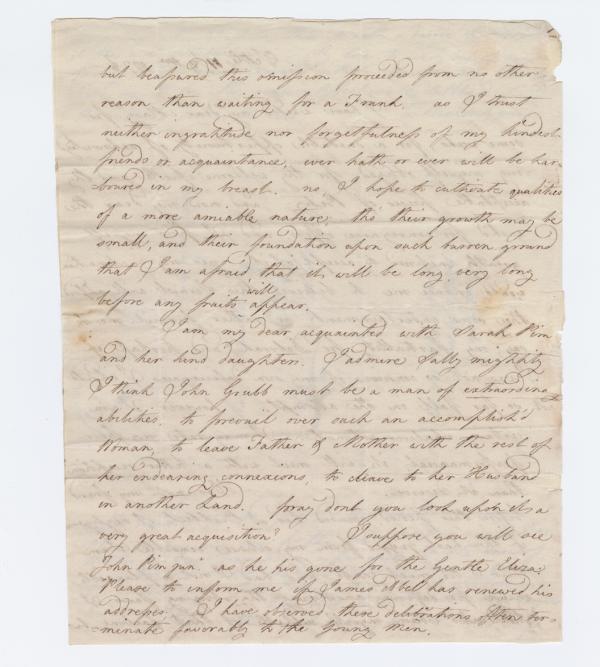 but beassured this omission proceeded from no other
reason than waiting for a Frank. as I trust
neither ingratitude nor forgetfulness of my kindest
friends or acquaintance, ever hath or ever will be har-
boured in my breast. no, I hope to cultivate qualities
of a more amiable nature, tho' their growth may be
small, and their foundation upon such barren ground
that I am afraid that it will be long very long
before any fruits will appear.
I am my dear acquainted with Sarah Pim
and her kind daughters. I admire Sally mightily
I think John Grubb must be a man of extraordinay
abilities, to prevail over such an accomplish'd
Woman, to leave Father & Mother with the rest of
her endearing connexions, to cleave to her Husband
in another Land. pray dont you look upon it a
very great acquisition? I suppose you will see
John Pim junr as he his gone for the Gentle Eliza;
Please to inform me if James Abel has renewed his
addresses. I have observed these deliberations often ter-
minate favorably to the Young Men.